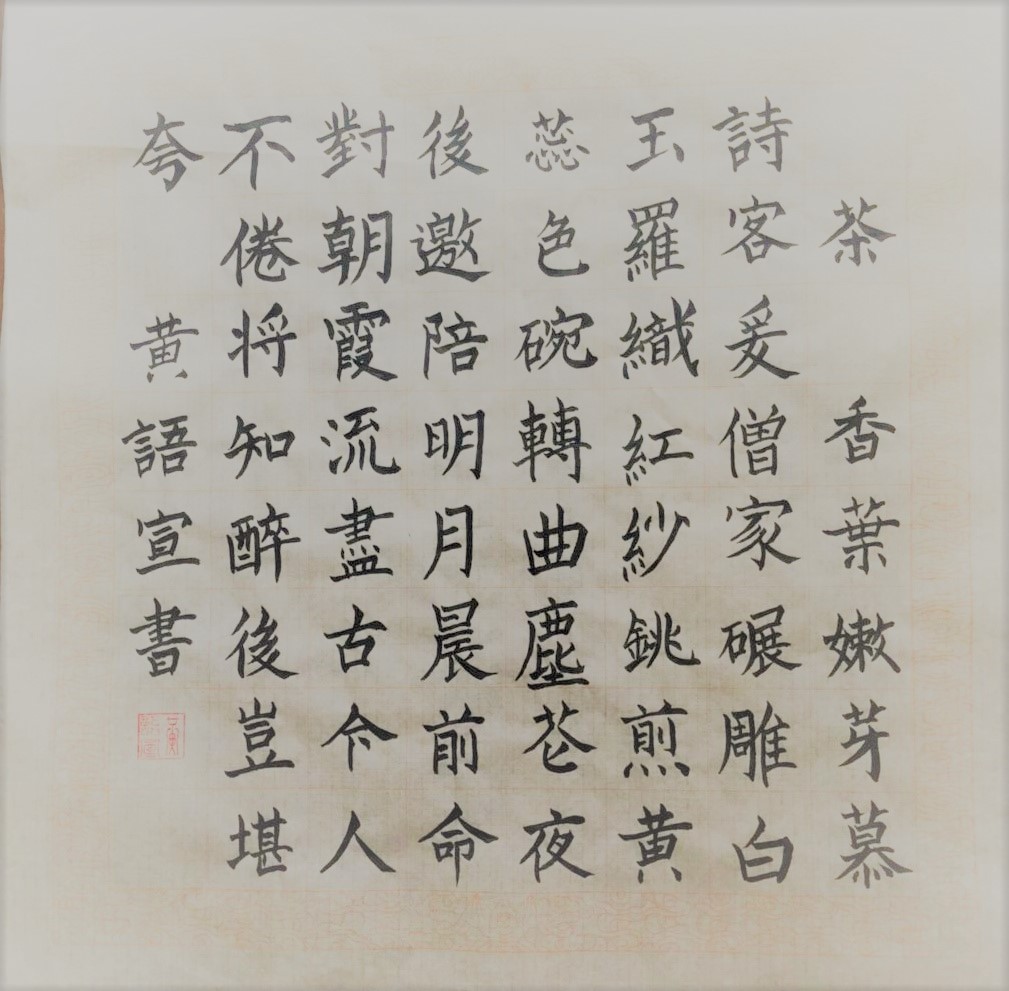 茶 香葉嫩芽慕
詩客爰僧家碾雕白
玉羅織紅紗銚煎黄
蕊色碗轉曲塵花夜
後邀陪明月晨前命
對朝霞流盡古今人
不倦将知醉後豈堪
夸 黄語宣書